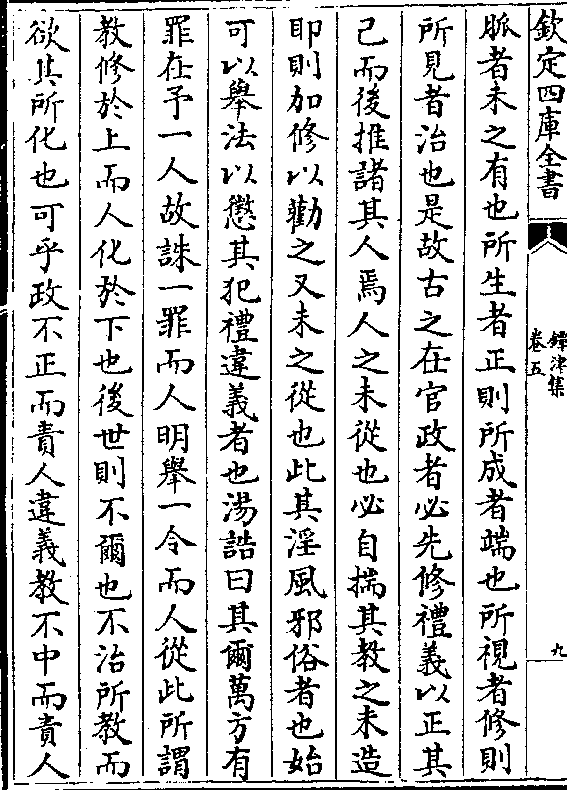 欽定四庫全書
鐔津集
卷五
九
脈者未之有也所生者正則所成者端也所視者修則
所見者治也是故古之在官政者必先修禮義以正其
己而後推諸其人焉人之未從也必自揣其教之未造
耶則加修以勸之又未之從也此其淫風邪俗者也始
可以舉法以懲其犯禮違義者也湯誥曰其爾萬方有
罪在予一人故誅一罪而人明舉一令而人從此所謂
教修於上而人化於下也後世則不爾也不治所教而
欲其所化也可乎政不正而責人違義教不中而責人